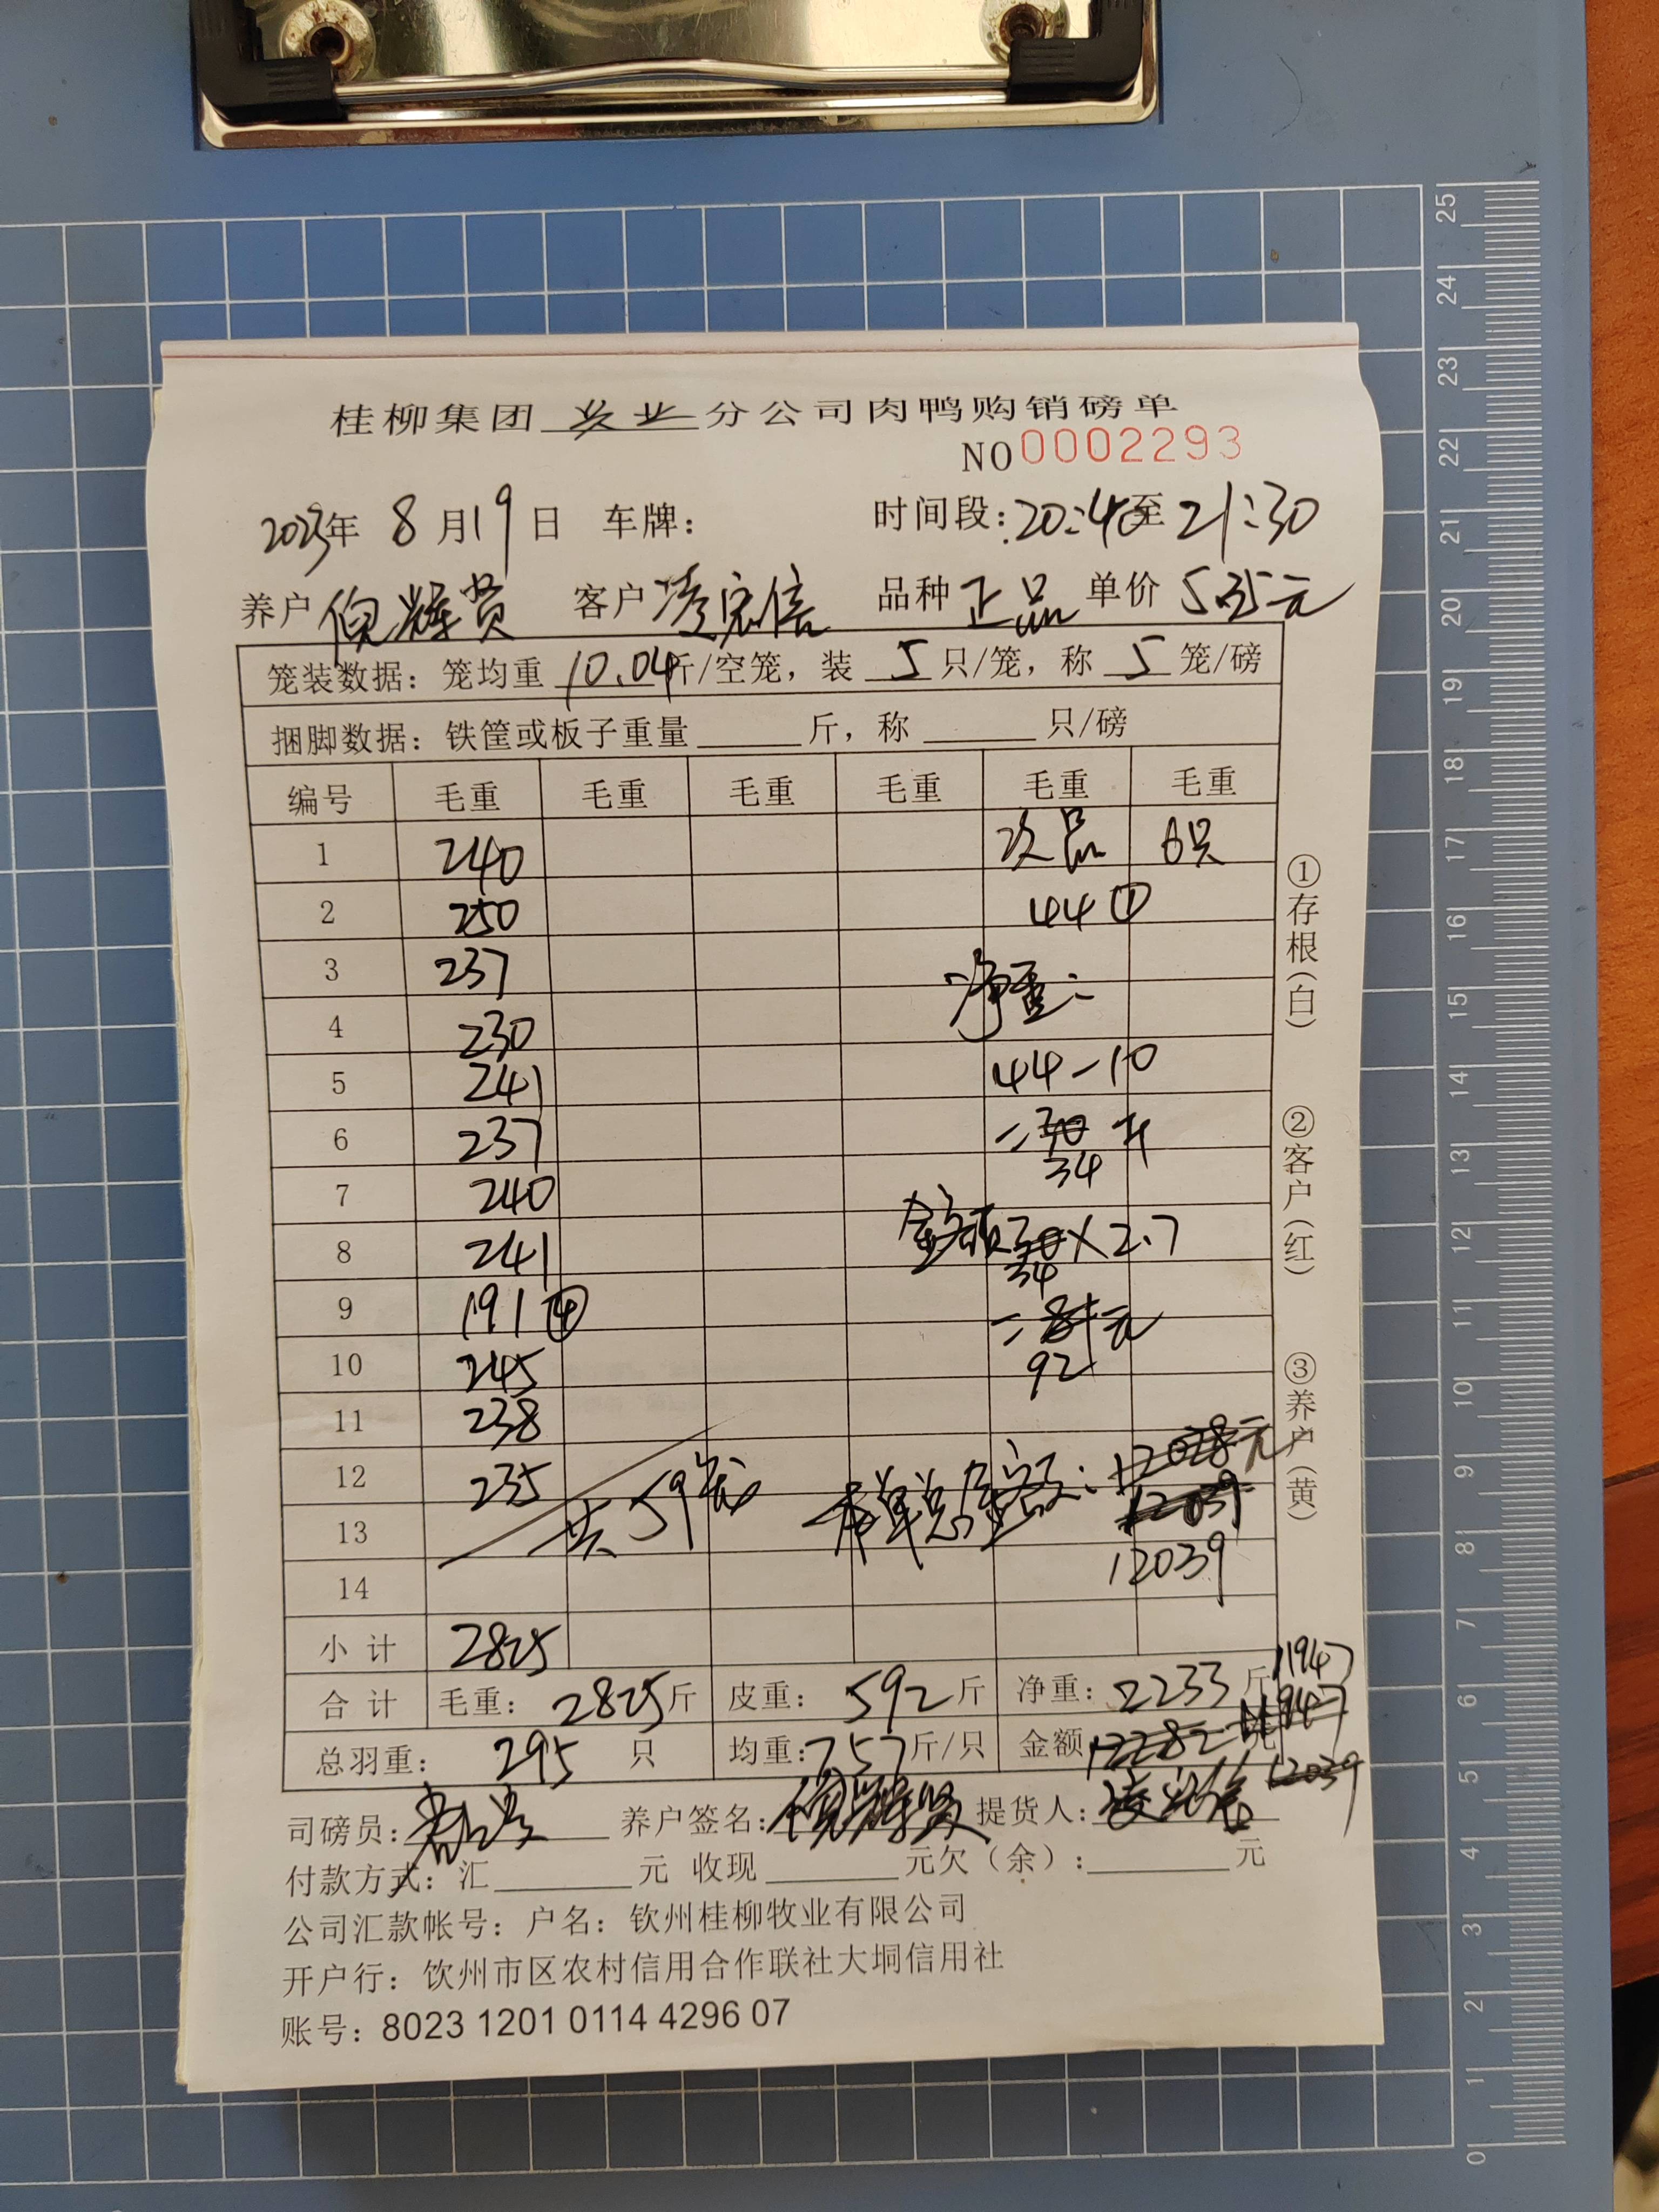 桂柳集团 兴业 分公司肉鸭购销磅单
NO 0002293
2023年 8月19日 车牌： 时间段：20:40至 21:30
养户 倪辉贤 客户 凌宏信 品种 正品 单价 5.35元
笼装数据：笼均重 10.04斤/空笼，装 5 只/笼，称 5 笼/磅
捆脚数据：铁筐或板子重量 斤，称 只/磅
编号 毛重 毛重 毛重 毛重 毛重 毛重
1 240 次品 6只
2 250 44①
3 237 净重：
4 230
5 241 44-10
6 237 =30 斤
34
7 240
8 241 金额30×2.7
34
9 191④ =81元
10 245 92
11 238
12 235 共59笼 本单总金额：12028元
13 12039
14 12039
小计 2825
合计 毛重：2825斤 皮重：592斤 净重：2233斤 11947
11947
总羽重：295 只 均重：7.57斤/只 金额 12282 元
12039
司磅员： 养户签名：倪辉贤 提货人：凌宏信
付款方式：汇 元 收现 元欠（余）： 元
公司汇款帐号：户名：钦州桂柳牧业有限公司
开户行：钦州市区农村信用合作联社大垌信用社
账号：8023 1201 0114 4296 07
①存根（白）
②客户（红）
③养户（黄）
25
24
23
22
21
20
19
18
17
16
15
14
13
12
11
10
9
8
7
6
5
4
3
2
1
0